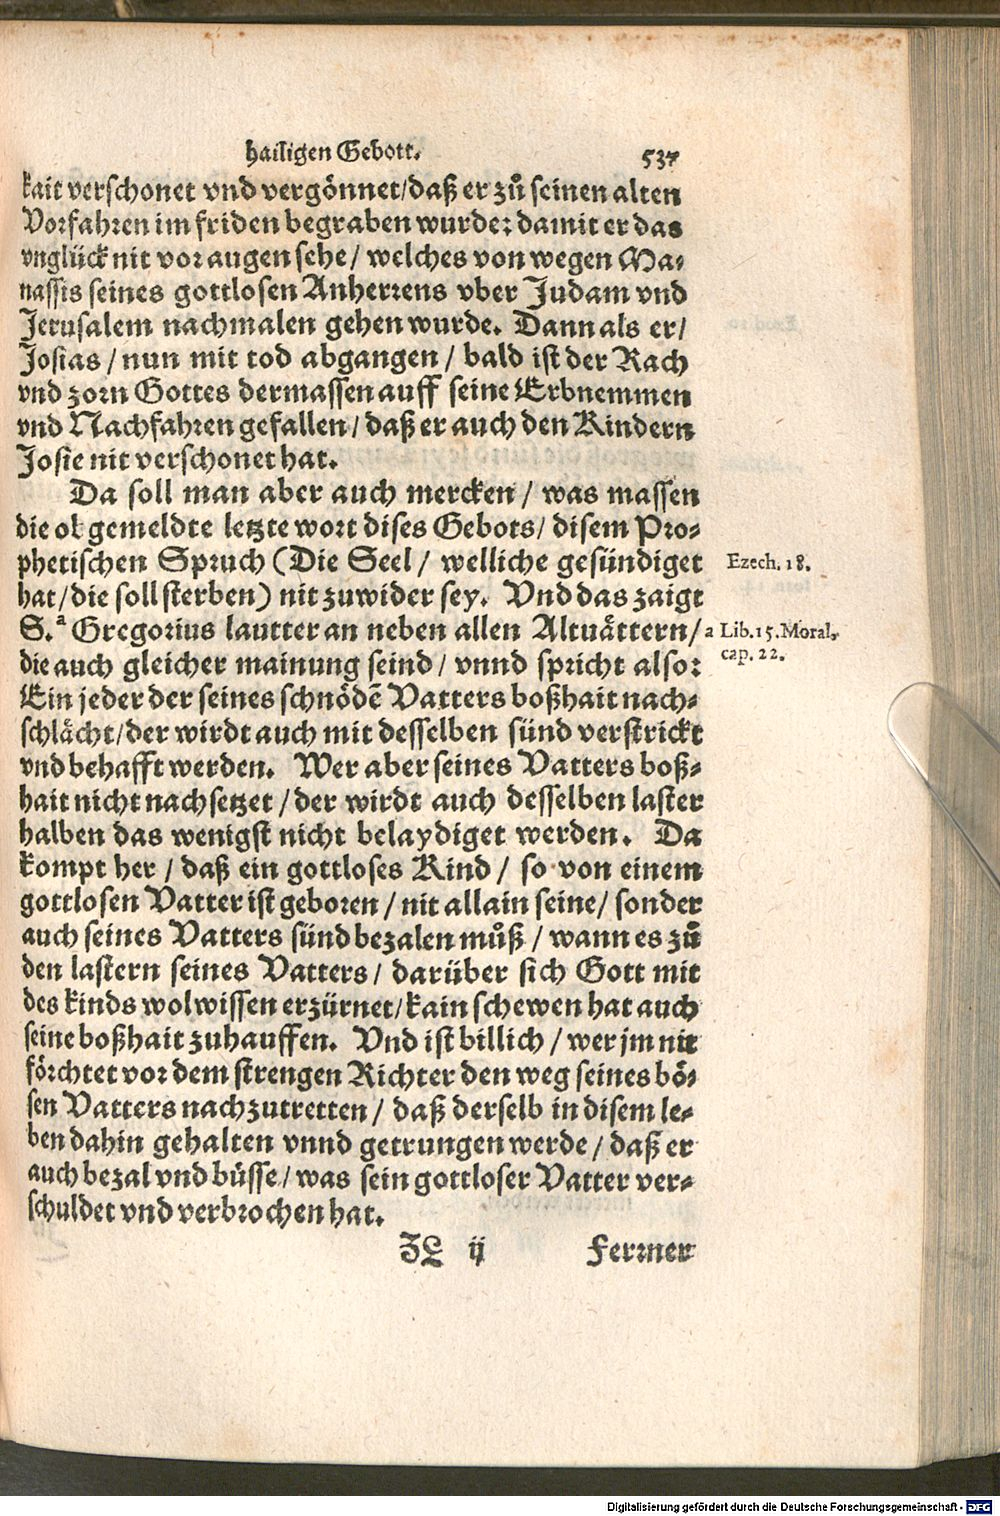 hailigen Gebott. 537
kait verschonet vnd vergönnet/daß er zů seinen alten
Vorfahren im friden begraben wurde: damit er das
vnglück nit vor augen sehe/ welches von wegen Ma-
nassis seines gottlosen Anherrens vber Judam vnd
Jerusalem nachmalen gehen wurde. Dann als er/
Josias/ nun mit tod abgangen/ bald ist der Rach
vnd zorn Gottes dermassen auff seine Erbnemmen
vnd Nachfahren gefallen/ daß er auch den Kindern
Josie nit verschonet hat.
Da soll man aber auch mercken/ was massen
die obgemeldte letzte wort dises Gebots/ disem Pro-
phetischen Spruch (Die Seel/ welliche gesündiget
Ezech. 18.
hat/ die soll sterben) nit zuwider sey. Vnd das zaigt
S.ª Gregorius lautter an neben allen Altuättern/
a Lib.15.Moral.
cap. 22.
die auch gleicher mainung seind/ vnnd spricht also:
Ein jeder der seines schnödẽ Vatters boßhait nach-
schlächt/der wirdt auch mit desselben sünd verstrickt
vnd behafft werden. Wer aber seines Vatters boß-
hait nicht nachsetzet/ der wirdt auch desselben laster
halben das wenigst nicht belaydiget werden. Da
kompt her/ daß ein gottloses Kind/ so von einem
gottlosen Vatter ist geboren/ nit allain seine/ sonder
auch seines Vatters sünd bezalen můß/ wann es zů
den lastern seines Vatters/ darüber sich Gott mit
des kinds wolwissen erzürnet/kain schewen hat auch
seine boßhait zuhauffen. Vnd ist billich/ wer jm nit
förchtet vor dem strengen Richter den weg seines bö-
sen Vatters nachzutretten/ daß derselb in disem le-
ben dahin gehalten vnnd getrungen werde/ daß er
auch bezal vnd büsse/ was sein gottloser Vatter ver-
schuldet vnd verbrochen hat.
ij Ferrner
Digitalisierung gefördert durch die Deutsche Forschungsgemeinschaft - DFG